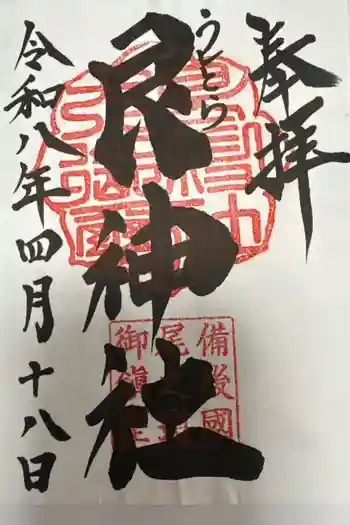 奉拝
うしとら
艮神社
令和八年四月十八日
備後國
尾道
御鎮座